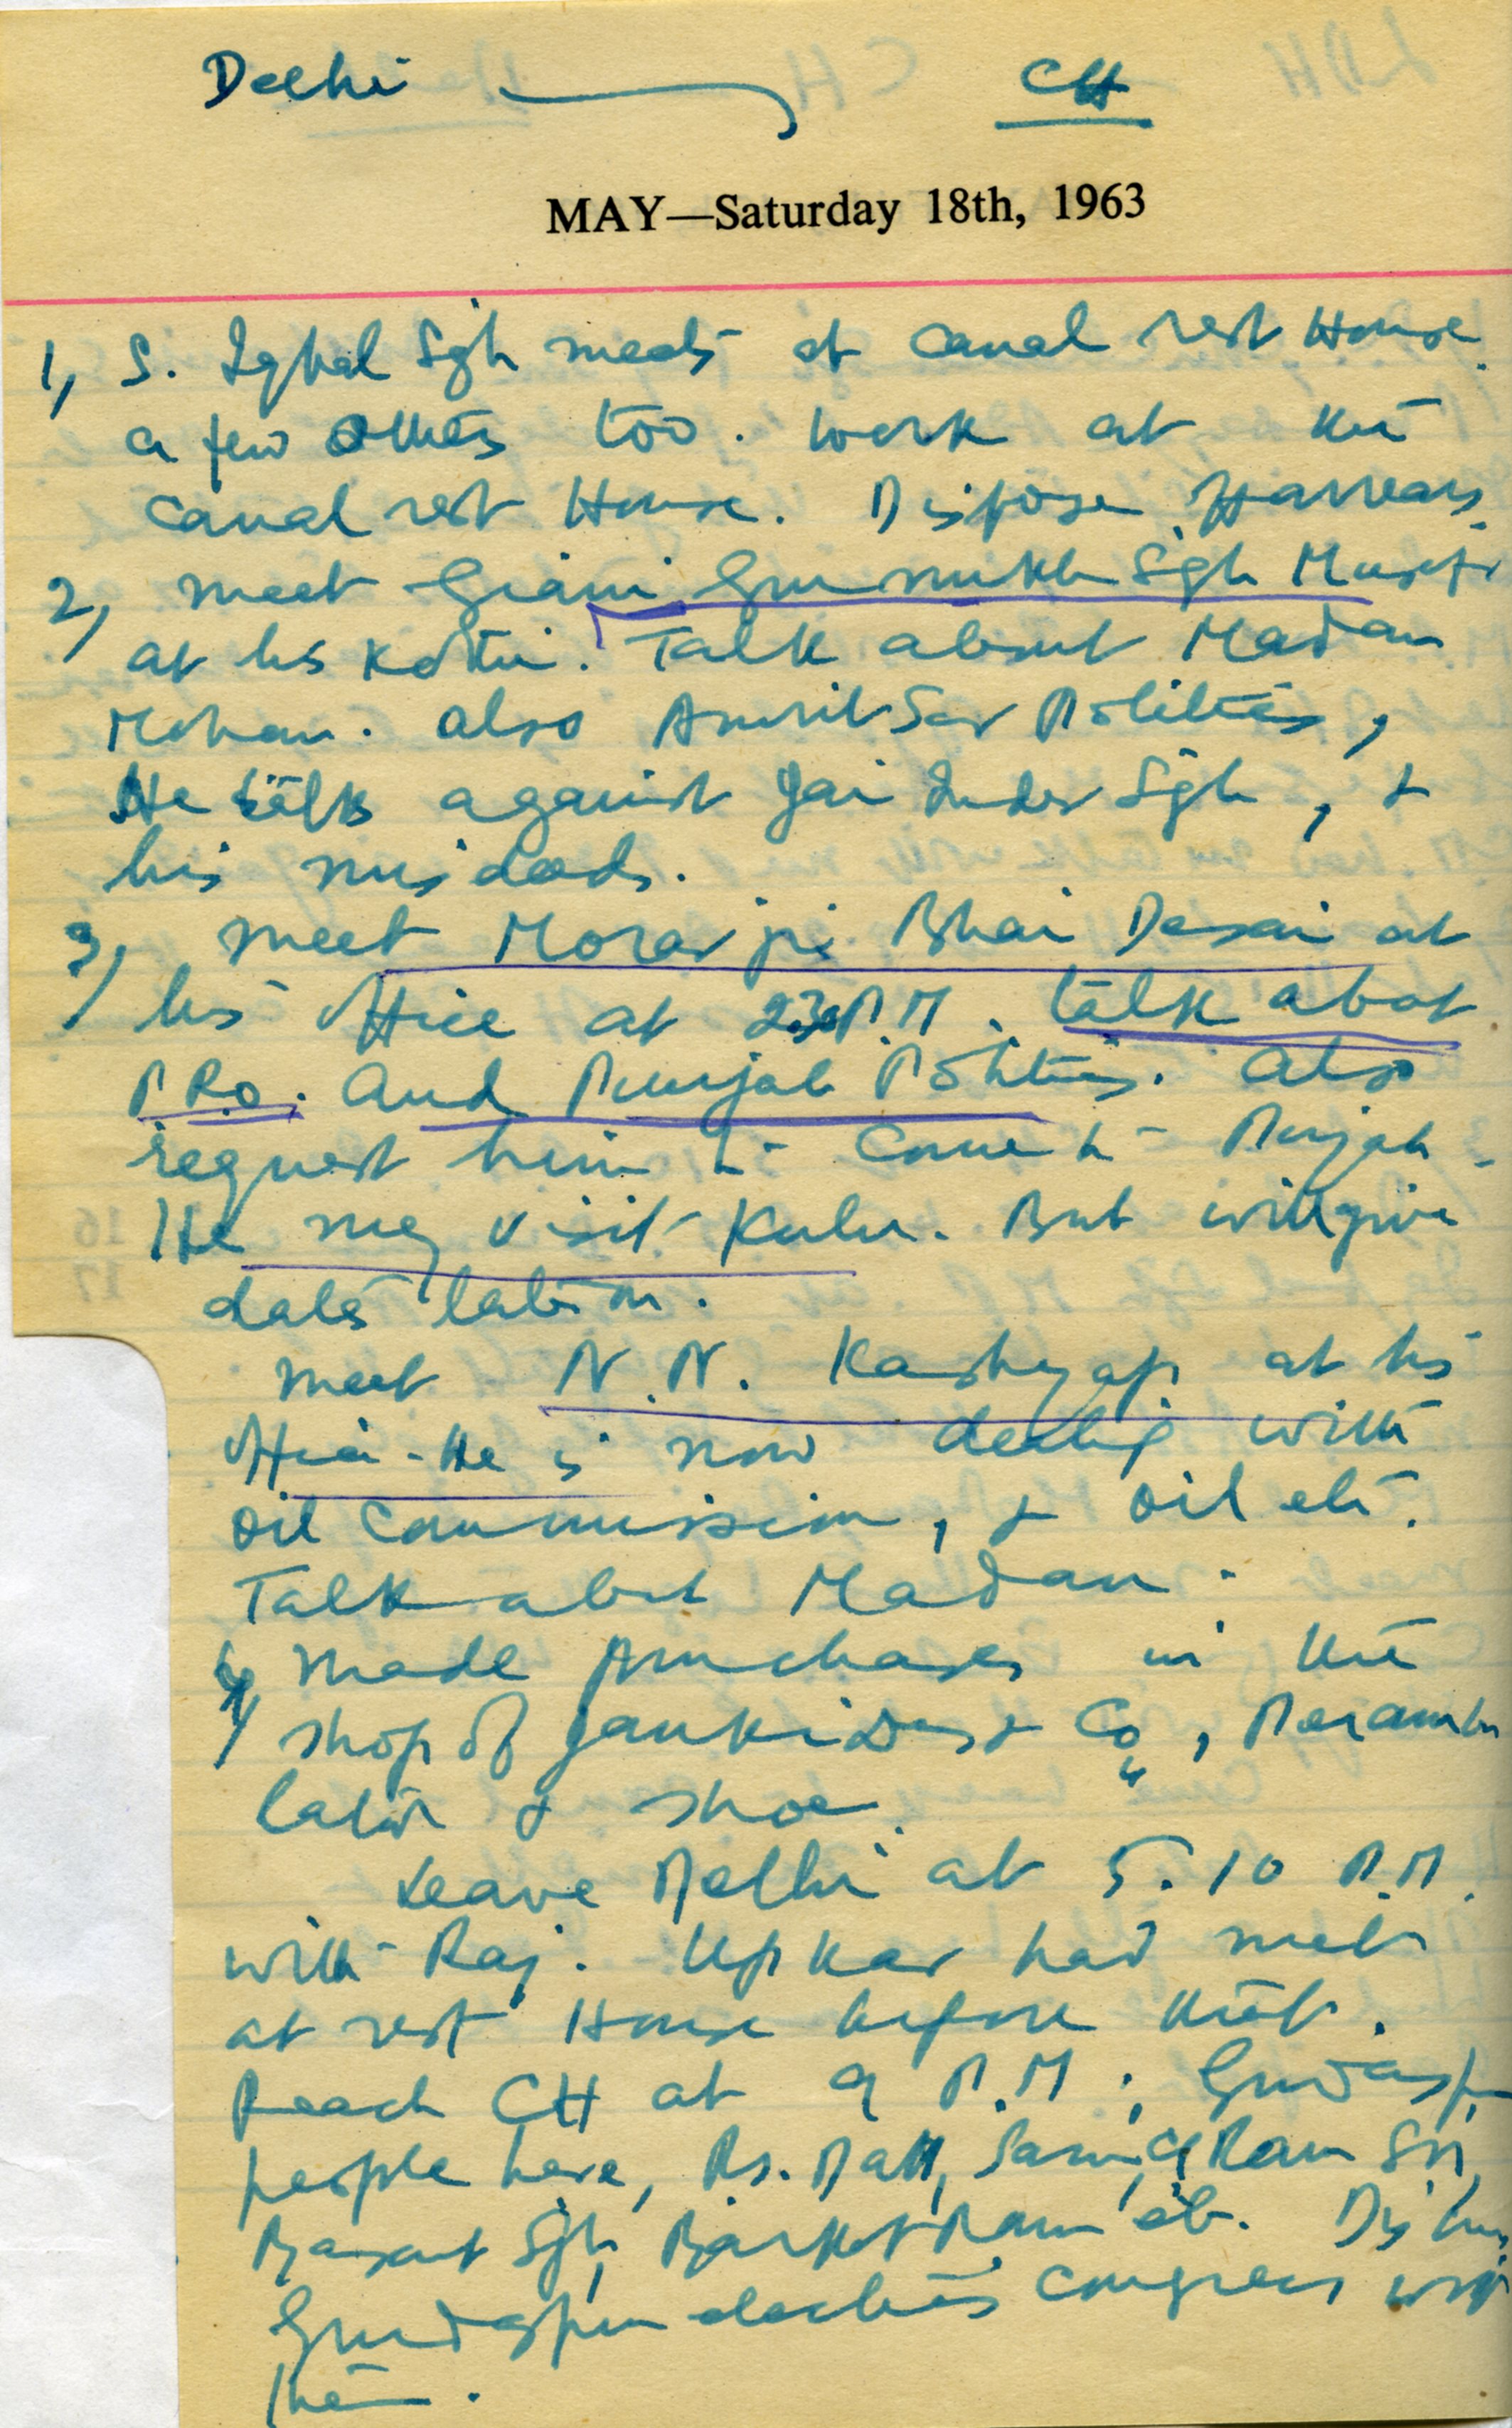 Delhi CH
MAY—Saturday 18th, 1963
1, S. Iqbal Sgh meets at Canal rest House.
a few others too. Work at the
Canal rest House. Dispose arrears.
2, meet Giani Gurmukh Sgh Musafir
at his Kothi. Talk about Madan
Mohan. also Amritsar Politics,
He talks against Jai Inder Sgh, &
his misdeeds.
3, meet Morarji Bhai Desai at
his office at 2.30 P.M. talk about
P.R.O. and Punjab Politics. also
request him to come to Punjab.
He may visit Kulu. But will give
dates later on.
meet N. N. Kashyap at his
office. He is now dealing with
oil Commission, & oil etc.
Talk about Madan.
4, Made purchases in the
shop of Jankidas & Co,
& shoe.
Leave Delhi at 5.10 P.M.
with Raj. Upkar had met
at rest House before that.
Reach CH at 9 P.M. Gurdaspur
people here, Ram
Basant Sgh, Barkat Ram etc.
Gurdaspur elections Congress with
them.